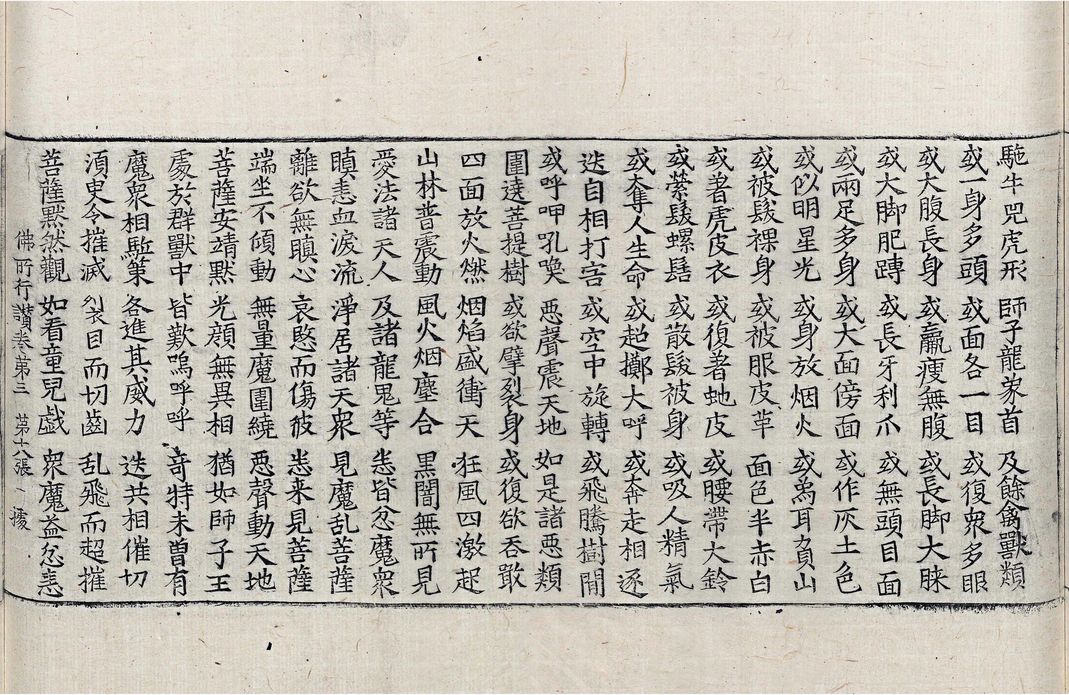 馳牛兕虎形 師子龍象首 及餘禽獸類
或一身多頭 或面各一目 或復衆多眼
或大腹長身 或羸瘦無腹 或長脚大䐚
或大脚肥踌 或長牙利爪 或無頭目面
或兩足多身 或大面傍面 或作灰土色
或似明星光 或身放烟火 或象耳負山
或被髮裸身 或被服皮革 面色半赤白
或著虎皮衣 或復著虵皮 或腰帶大鈴
或縈髮螺髻 或散髮被身 或吸人精氣
或奪人生命 或超擲大呼 或奔走相逐
迭自相打害 或空中旋轉 或飛騰樹間
或呼呷吼喚 惡聲震天地 如是諸惡類
圍遶菩提樹 或欲擘裂身 或復欲吞噉
四面放火燃 烟焰盛衝天 狂風四激起
山林普震動 風火烟塵合 黑闇無所見
愛法諸天人 及諸龍鬼等 恚皆忿魔衆
瞋恚血淚流 淨居諸天衆 見魔乱菩薩
離欲無瞋心 哀愍而傷彼 悉来見菩薩
端坐不傾動 無量魔圍繞 惡聲動天地
菩薩安靖默 光顔無異相 猶如師子王
處於群獸中 皆歎嗚呼呼 奇特未曾有
魔衆相駈策 各進其威力 迭共相催切
湏臾令摧滅 裂目而切齒 乱飛而超摧
菩薩黙然觀 如看童兒戲 衆魔益忿恚
佛所行讚卷第三 第十八張 擾